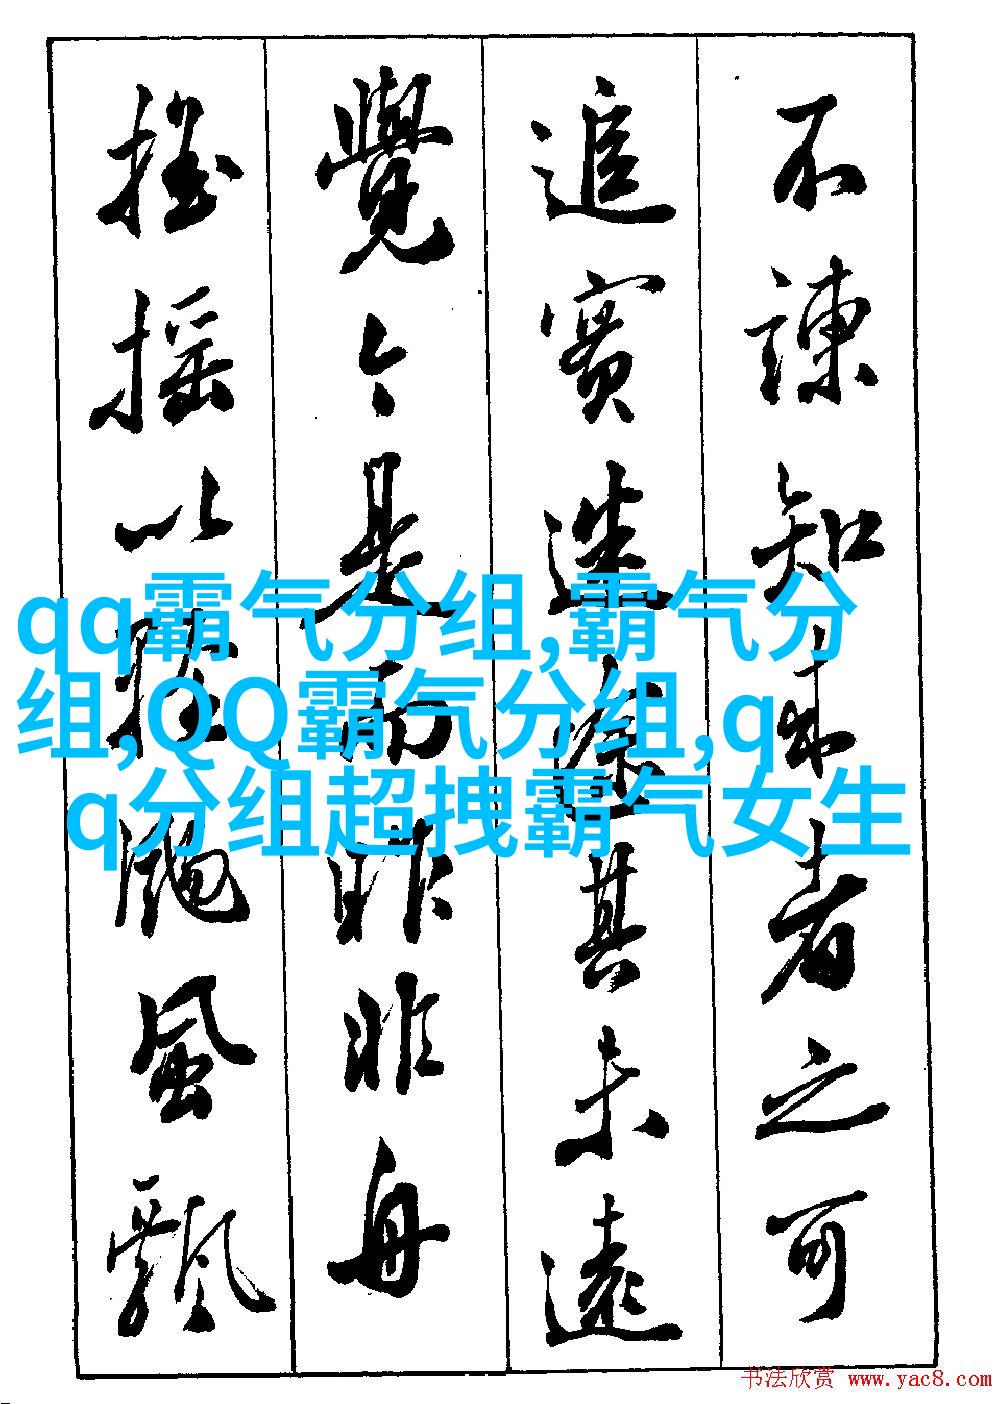 不諫知来者之可
追實迷途其未遠
覺今是而昨非舟
搖搖以輕颺風飄
qq霸气分组,霸气分
组,QQ霸气分组,q
q分组超拽霸气女生
书法欣赏 www.yac8.com